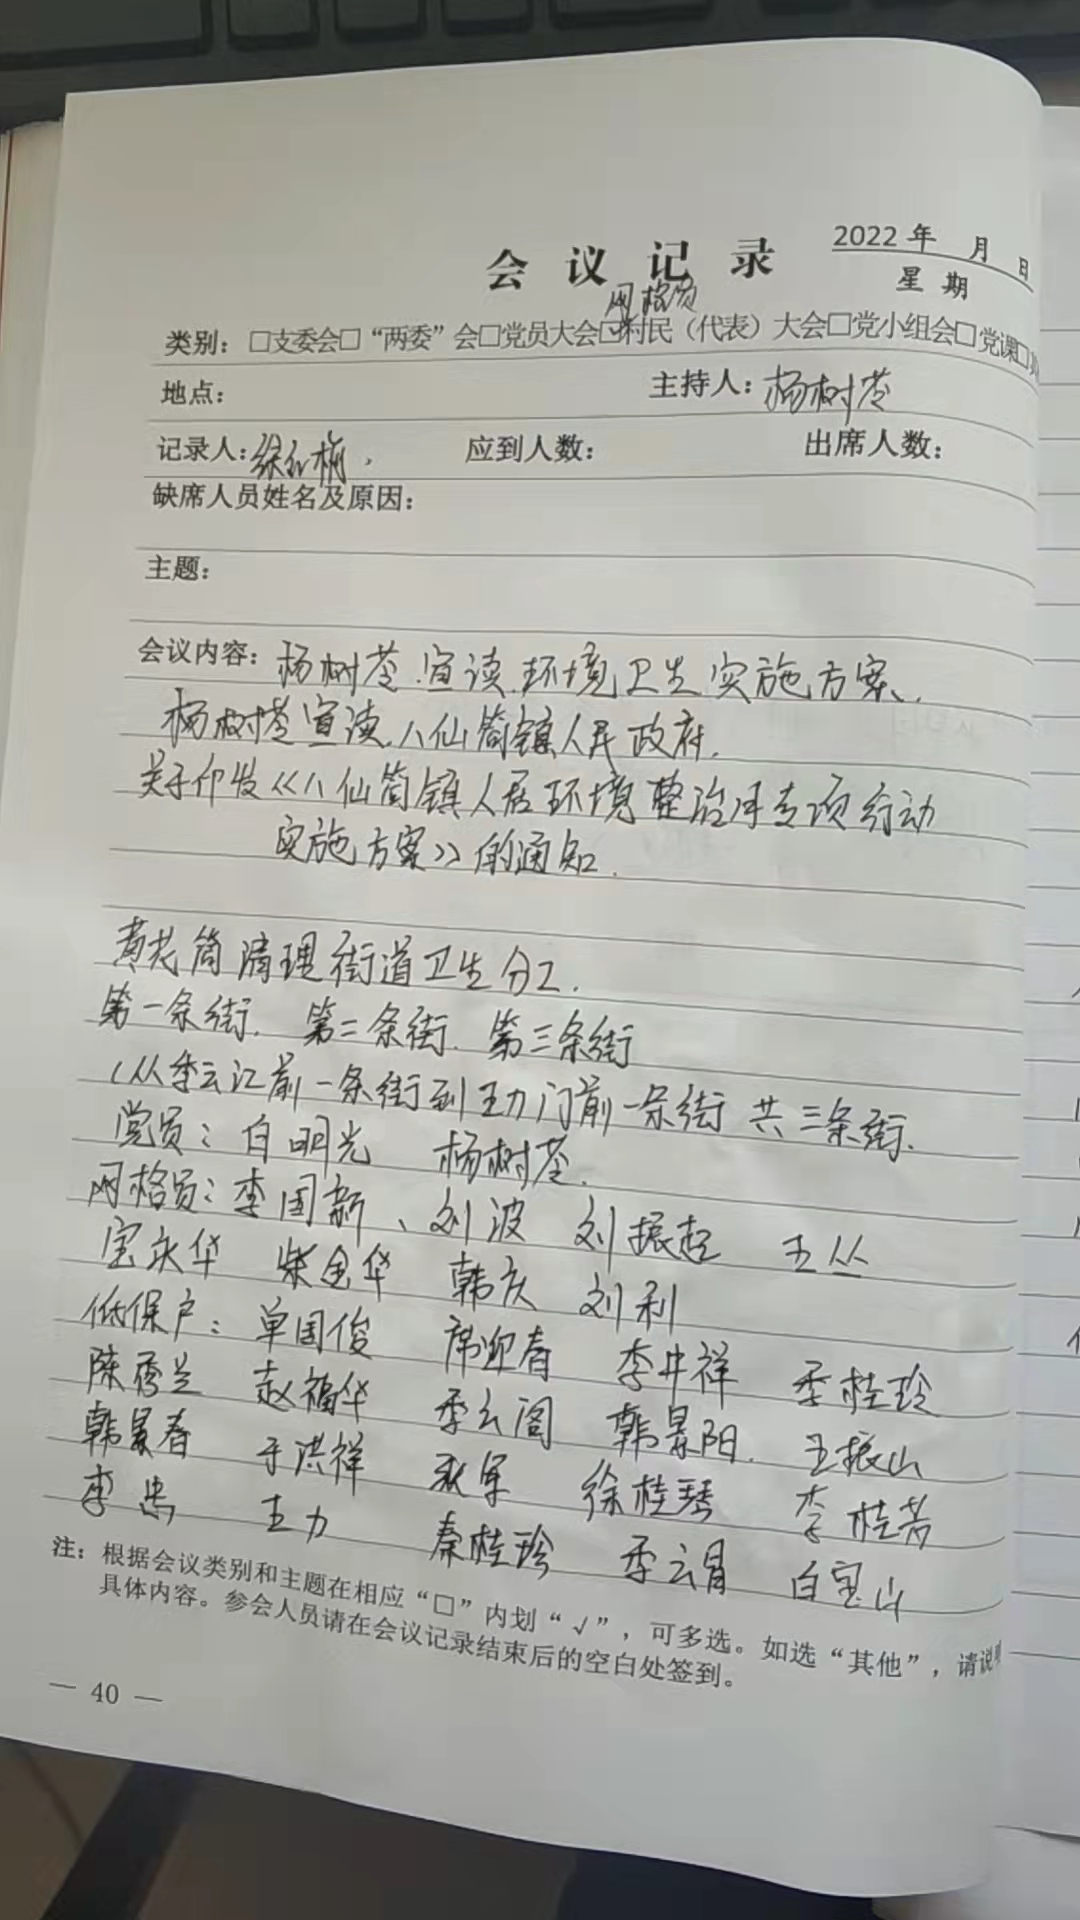 会议记录
2022年 月 日
星期
网格员
类别：□支委会□“两委”会□党员大会□村民（代表）大会□党小组会□党课□
地点： 主持人：杨树苍
记录人：徐红梅， 应到人数： 出席人数：
缺席人员姓名及原因：
主题：
会议内容：杨树苍.宣读.环境卫生实施方案、.
杨树苍宣读.八仙筒镇人民政府.
关于印发《八仙筒镇人居环境整治月专项行动
实施方案》的通知.
黄花筒清理街道卫生分工.
第一条街. 第二条街. 第三条街
（从季云江前一条街到王力门前一条街 共三条街.
党员：白明光 杨树苍.
网格员：李国新、刘波 刘振起 王丛
宝永华 柴金华 韩庆 刘利
低保户：单国俊 席迎春 李井祥 季桂玲
陈秀兰 赵福华 季云阁 韩景阳. 王振山
韩景春 于洪祥 耿军 徐桂琴 李桂芳
李忠 王力 秦桂珍 季云 白宝山
注：根据会议类别和主题在相应“□”内划“√”，可多选。如选“其他”，请说明
具体内容。参会人员请在会议记录结束后的空白处签到。
— 40 —